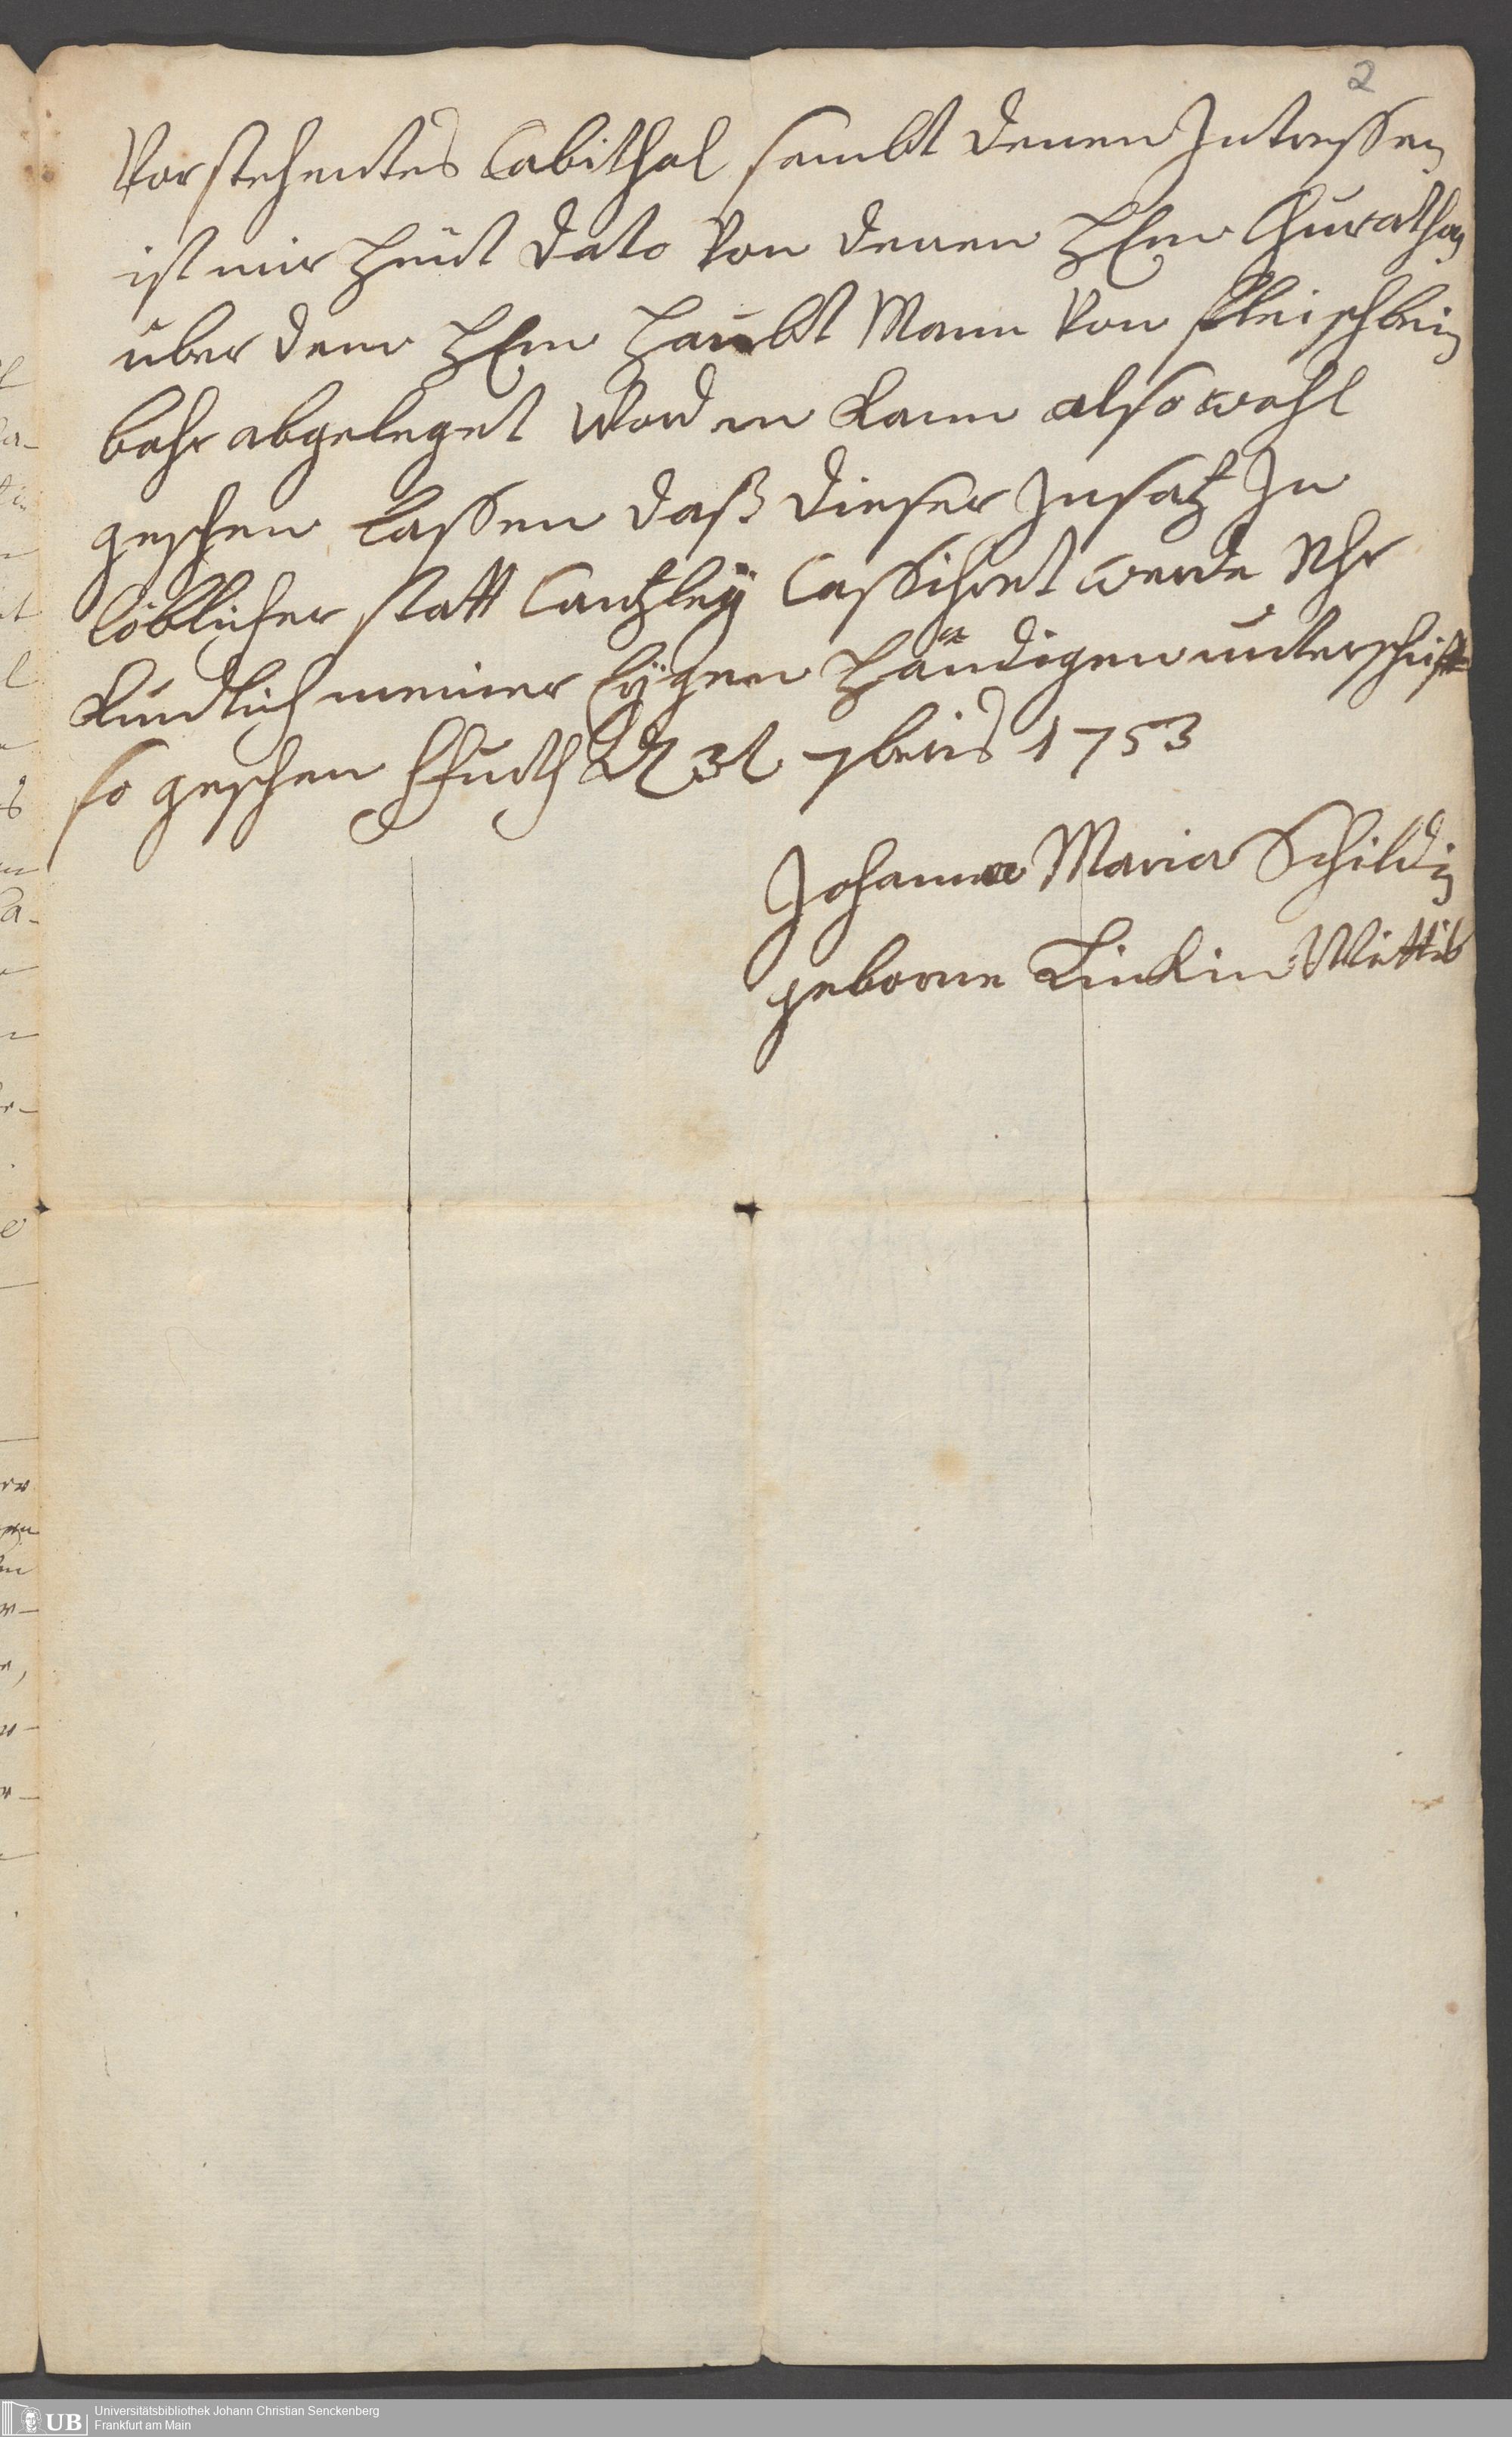 2
Vorstehentes Cabithal sambt denen Intressen
ist mir heüt dato von denen HErrn Curathorn
über dem HErrn Haubt Mann von Fleischbein
bahr abgeleget worden kann also wohl
geschen lassen daß dieser Insatz In
löblicher statt Cantzleÿ Cassihret werde Uhr
kundlich meiner Eÿgen händigen unterschrifft
so geschen Ffurth 7beris 1753
Johanna Maria Schildin
geborne Linckin Wittib
UB
Universitätsbibliothek Johann Christian Senckenberg
Frankfurt am Main